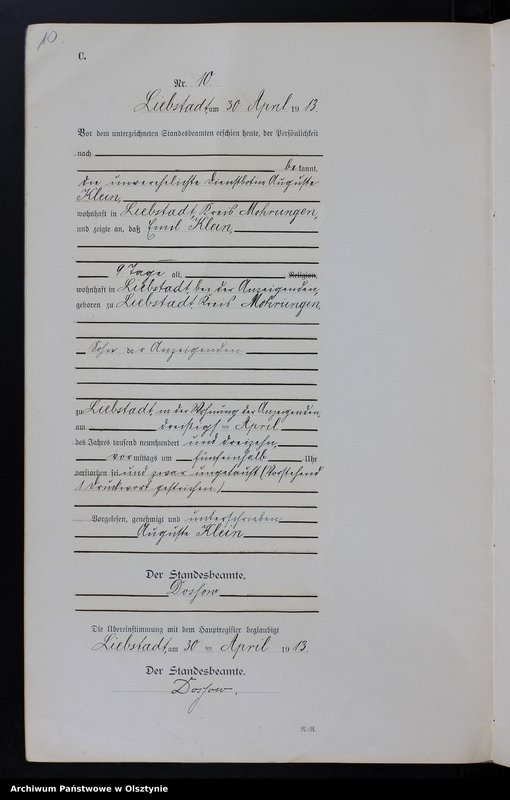 10
C.
Nr. 10
Liebstadt am 30 April 1913.
Vor dem unterzeichneten Standesbeamten erschien heute, der Persönlichkeit
nach
bekannt,
die unverehelichte Dienstbotin Auguste
Klein,
wohnhaft in Liebstadt, Kreis Mohrungen,
und zeigte an, daß Emil Klein,
9 Tage alt, Religion,
wohnhaft in Liebstadt bei der Anzeigenden,
geboren zu Liebstadt Kreis Mohrungen,
Sohn der Anzeigenden,
zu Liebstadt, in der Wohnung der Anzeigenden,
am dreißigsten April
des Jahres tausend neunhundert und dreizehn,
vor mittags um fünfeinhalb Uhr
verstorben sei und zwar ungetauft. (Vorstehend
1 Druckwort gestrichen.)
Vorgelesen, genehmigt und unterschrieben
Auguste Klein
Der Standesbeamte.
Die Übereinstimmung mit dem Hauptregister beglaubigt
Liebstadt am 30 ten April 1913.
Der Standesbeamte.
Archiwum Państwowe w Olsztynie